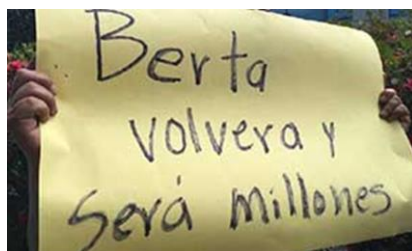 Berta
volvera y
Será millones